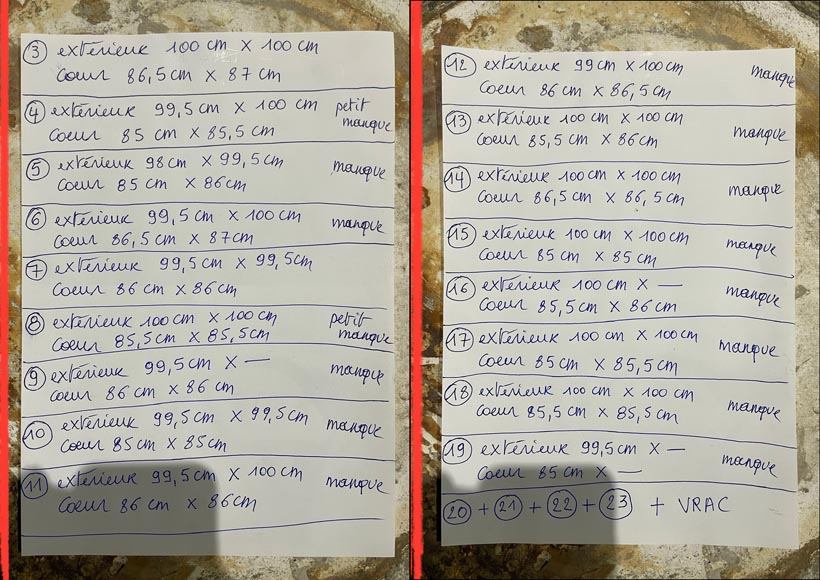 ③ extérieur 100 cm X 100 cm
Coeur 86,5 cm X 87 cm
④ extérieur 99,5 cm X 100 cm petit
Coeur 85 cm X 85,5 cm manque
⑤ extérieur 98 cm X 99,5 cm manque
Coeur 85 cm X 86 cm
⑥ extérieur 99,5 cm X 100 cm manque
Coeur 86,5 cm X 87 cm
⑦ extérieur 99,5 cm X 99,5 cm
Coeur 86 cm X 86 cm
⑧ extérieur 100 cm X 100 cm petit
Coeur 85,5 cm X 85,5 cm manque
⑨ extérieur 99,5 cm X — manque
Coeur 86 cm X 86 cm
⑩ extérieur 99,5 cm X 99,5 cm manque
Coeur 85 cm X 85 cm
⑪ extérieur 99,5 cm X 100 cm manque
Coeur 86 cm X 86 cm
⑫ extérieur 99 cm X 100 cm manque
Coeur 86 cm X 86,5 cm
⑬ extérieur 100 cm X 100 cm manque
Coeur 85,5 cm X 86 cm
⑭ extérieur 100 cm X 100 cm manque
Coeur 86,5 cm X 86,5 cm
⑮ extérieur 100 cm X 100 cm manque
Coeur 85 cm X 85 cm
⑯ extérieur 100 cm X — manque
Coeur 85,5 cm X 86 cm
⑰ extérieur 100 cm X 100 cm manque
Coeur 85 cm X 85,5 cm
⑱ extérieur 100 cm X 100 cm manque
Coeur 85,5 cm X 85,5 cm
⑲ extérieur 99,5 cm X — manque
Coeur 85 cm X —
⑳ + ㉑ + ㉒ + ㉓ + VRAC